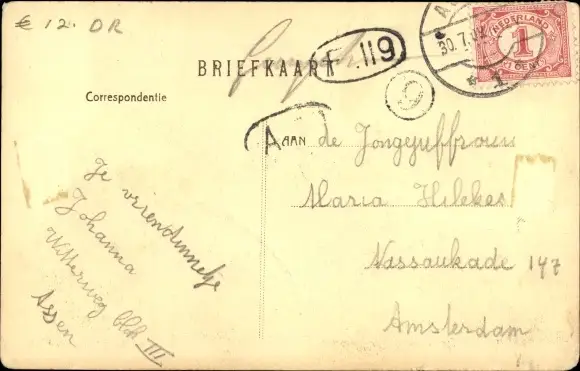 € 12. DR
BRIEFKAART
F. 119
A
30.7.
1
NEDERLAND
1
CENT
9
Correspondentie
A
AAN
de Jongejuffrouw
Maria Hilekes
Nassaukade 147
Amsterdam
Je vriendinnetje
Johanna
Witterweg blk III
Assen